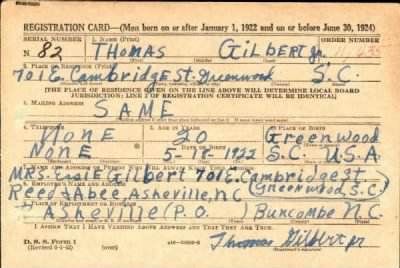 REGISTRATION CARD—(Men born on or after January 1, 1922 and on or before June 30, 1924)
SERIAL NUMBER 1. NAME (Print) ORDER NUMBER
N 82 THOMAS GILBERT Jr.
(First) (Middle) (Last)
2. PLACE OF RESIDENCE (Print)
701 E. Cambridge St. Greenwood S.C.
(THE PLACE OF RESIDENCE GIVEN ON THE LINE ABOVE WILL DETERMINE LOCAL BOARD
JURISDICTION; LINE 2 OF REGISTRATION CERTIFICATE WILL BE IDENTICAL)
3. MAILING ADDRESS
SAME
4. TELEPHONE 5. AGE IN YEARS 6. PLACE OF BIRTH
NONE 20 Greenwood
NONE 1922 S.C. U.S.A.
7. NAME AND ADDRESS OF PERSON WHO WILL ALWAYS KNOW YOUR ADDRESS
MRS. Essie Gilbert 701 E. Cambridge St.
(Greenwood, S.C.)
8. EMPLOYER'S NAME AND ADDRESS
Reed & Abee, Asheville, NC
9. PLACE OF EMPLOYMENT OR BUSINESS
Asheville (P.O.) Buncombe N.C.
I AFFIRM THAT I HAVE VERIFIED ABOVE ANSWERS AND THAT THEY ARE TRUE.
D. S. S. Form 1
Thomas Gilbert jr